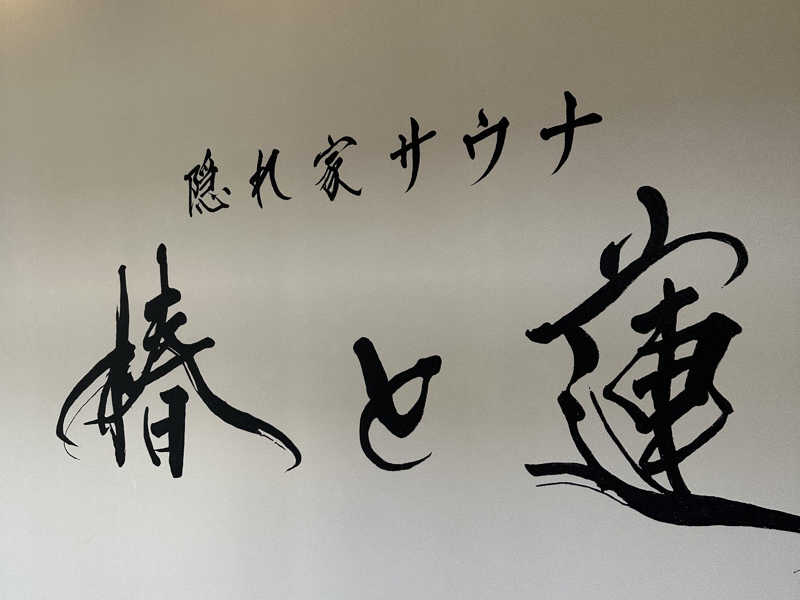 隠れ家サウナ
椿と蓮